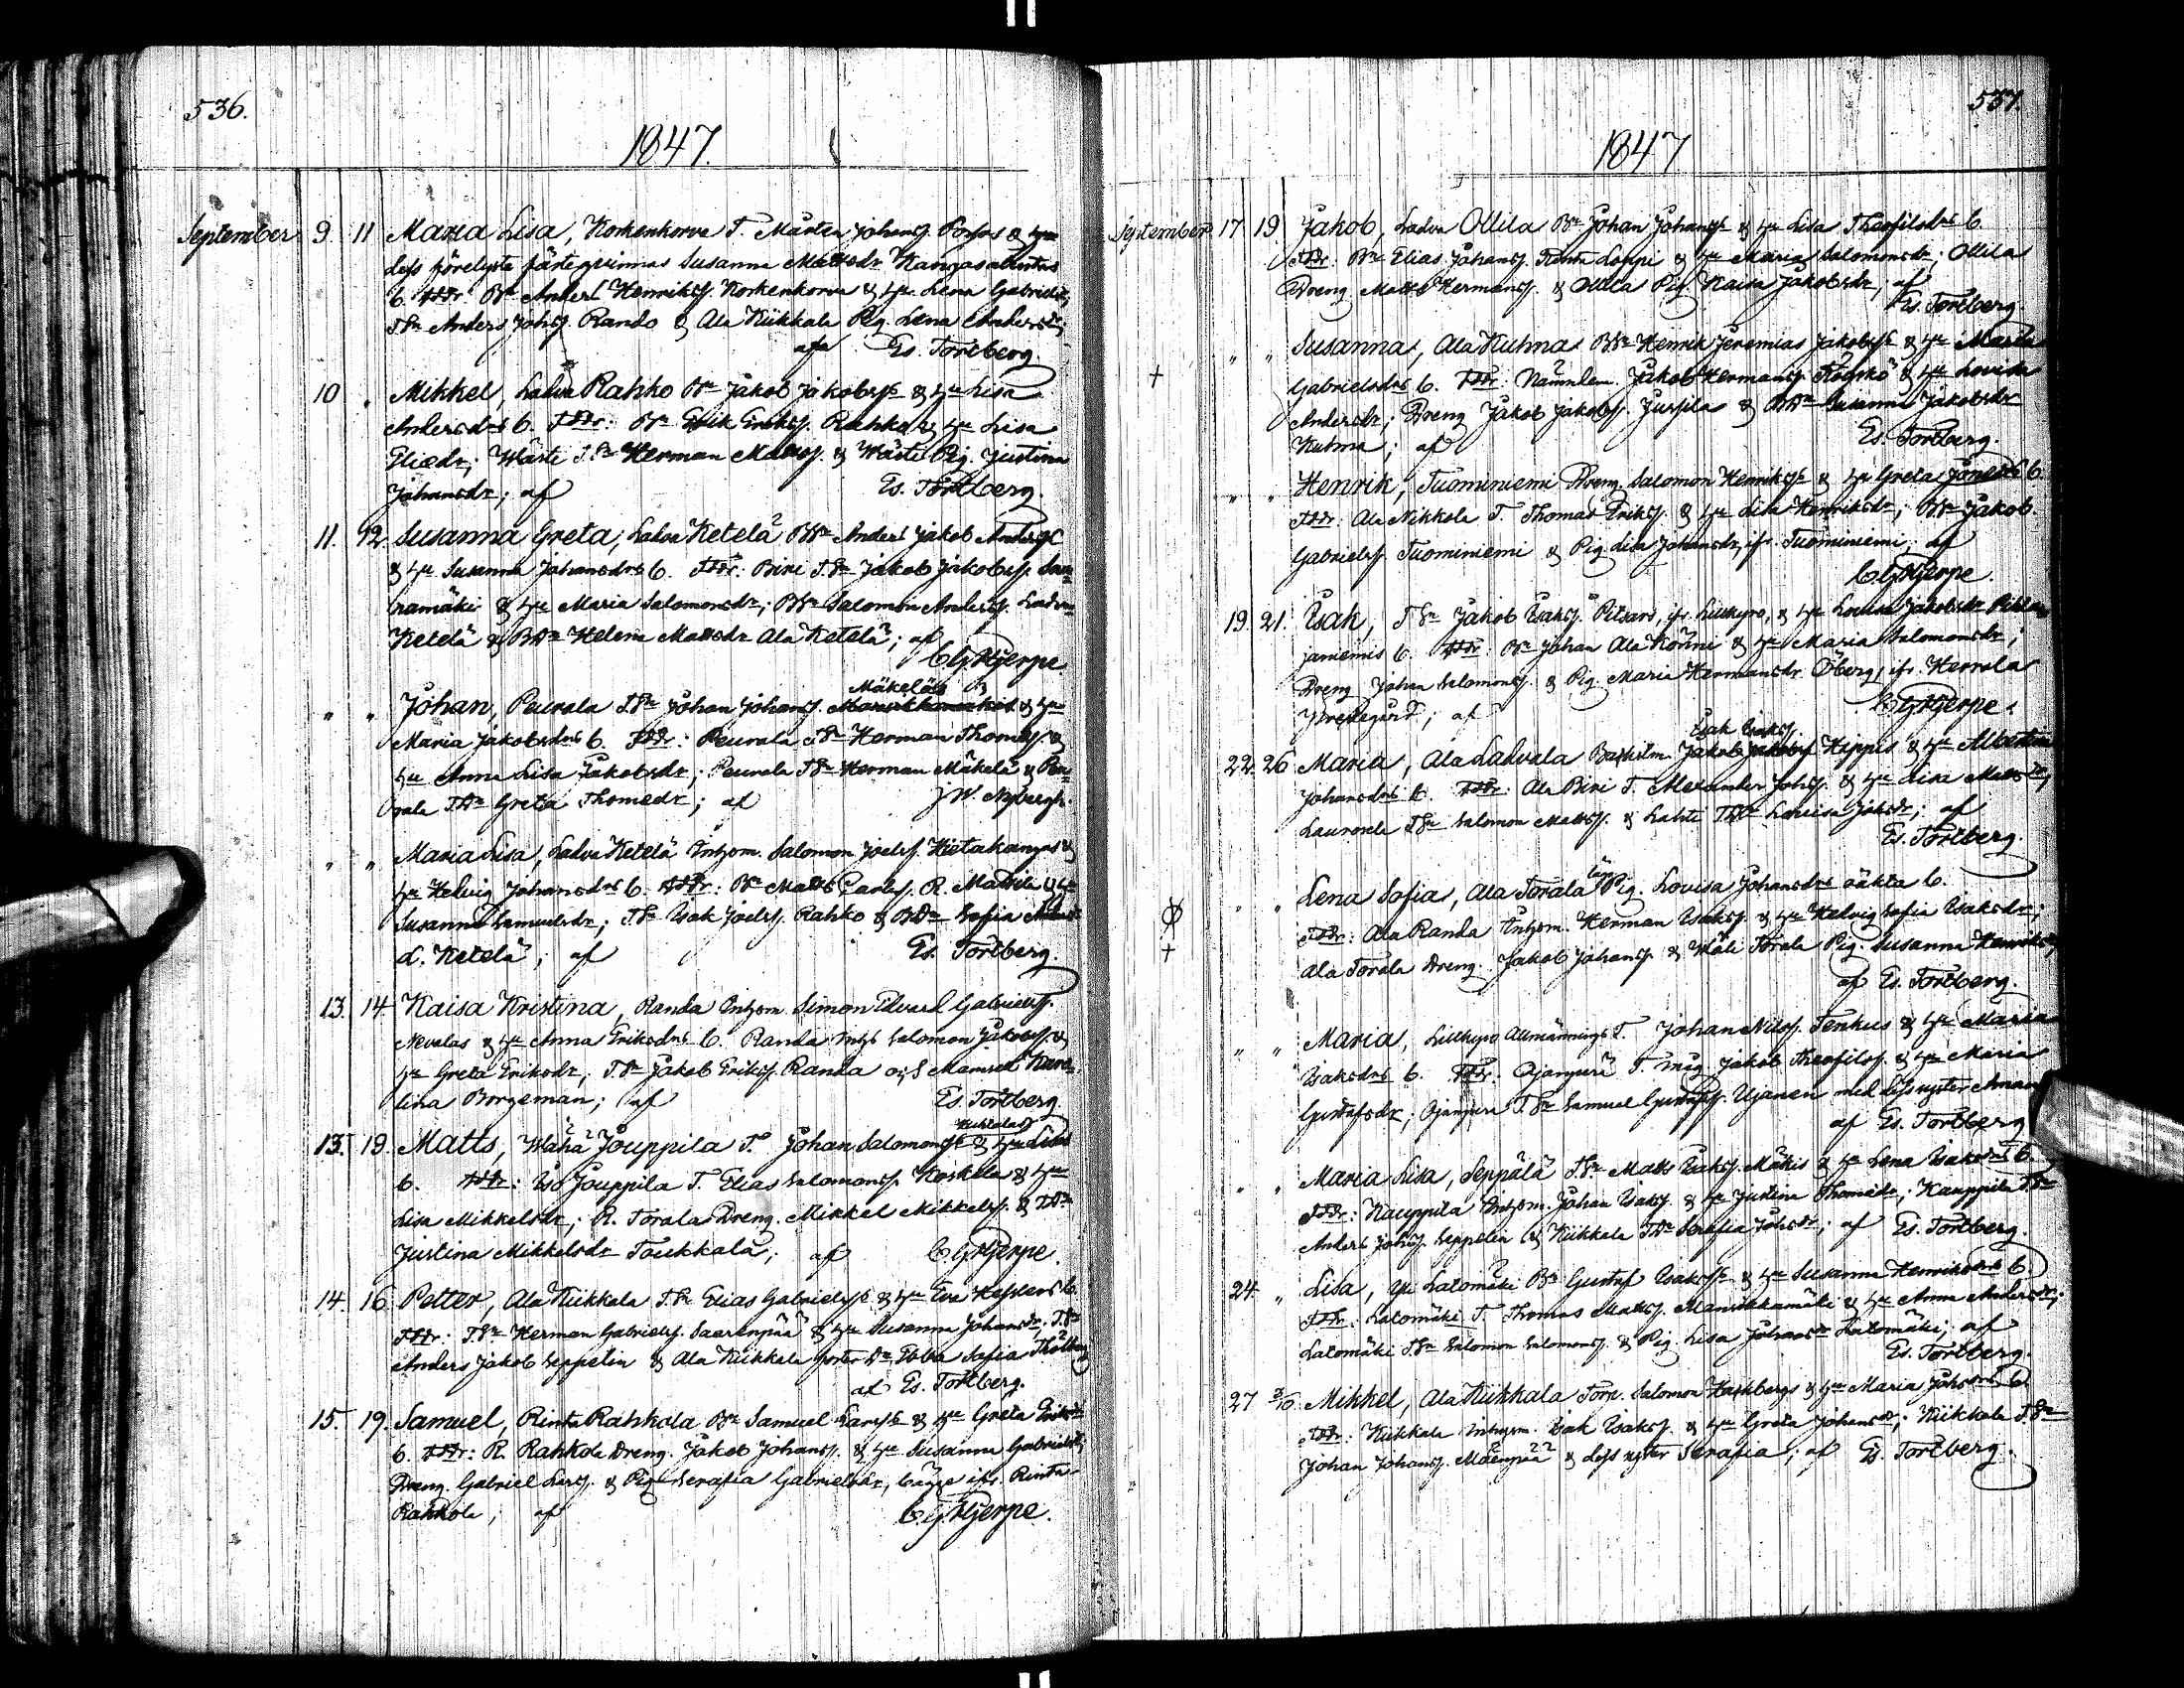 536.
1847.
September 9. 11 Maria Lisa, Korkenkorva T. Mårten Johansf. Porfas & Hu
dess förelyste fästeqvinnas Susanna Mattsdr Kangas
b. Fddr: Br Anders Henriksf. Korkenkorva & Hu Lena Gabrielsdr;
TSn Anders Johsf. Rando & Ala Kiikkala Pig. Lena Andersdr;
af Es. Tortberg.
10 " Mikkel, Ladva Rahko Br Jakob Jakobsf & Hu Lisa
Andersdrs b. Fddr: Br Erik Eriksf. Rahko & Hu Lisa
Eliedr; Wäste TSn Herman Mattsf. & Wäste Pig. Justina
Johansdr; af Es. Tortberg.
11. 12. Susanna Greta, Ladva Ketelä BSn Anders Jakob Andersf
& Hu Susanna Johansdrs b. Fddr: Biri TSn Jakob Jakobsf. Saa
ramäki & Hu Maria Salomonsdr; BSn Salomon Andersf. Ladva
Ketelä & BDr Helena Mattsdr Ala Ketelä; af
C G Hjerpe.
Mäkeläs
" " Johan, Peurala TSn Johan Johansf. & Hu
Maria Jakobsdrs b. Fddr: Peurala TSn Herman Thomsf. &
Hu Anna Lisa Jakobsdr; Peurala TSn Herman Mäkelä & Peu
rala TDr Greta Thomedr; af J W. Nybergh.
" " Maria Lisa, Ladva Ketelä Inhom. Salomon Joelsf. Hietakangas &
Hu Helvig Johansdrs b. Fddr: Br Matts Carlsf. R. Mattila & Hu
Susanna Samuelsdr; TSn Isak Joelsf. Rahko & BDr Sofia
L. Ketelä; af Es. Tortberg.
13. 14 Kaisa Kristina, Randa Inhom. Simon Edvard Gabrielsf.
Nevalas & Hu Anna Eriksdrs b. Randa Salomon Jakobsf. &
Hu Greta Eriksdr; TSn Jakob Eriksf. Randa och Mamsell Karo
lina Borgeman; af Es. Tortberg
13. 19. Matts, Wähä Jouppila T. Johan Salomonsf & Hu Lisas
b. Fddr: Iso Jouppila T. Elias Salomonsf. Koskela & Hu
Lisa Mikkelsdr; R. Torala Dreng. Mikkel Mikkelsf. & TDr
Justina Mikkelsdr Toukkala; af C G Hjerpe.
14. 16 Petter, Ala Kiikkala TSn Elias Gabrielsf & Hu Eva b.
Fddr: TSn Herman Gabrielsf. Saarenpää & Hu Susanna Johansdr; TSn
Anders Jakob Seppelin & Ala Kiikkala foster Dr Ebba Sofia
af Es. Tortberg.
15. 19. Samuel, Rinta Rahkola Br Samuel Larsf & Hu Greta
b. Fddr: R. Rahkola Dreng. Jakob Johansf. & Hu Susanna Gabrielsdr;
Dreng. Gabriel Larsf. & Pig. Serafia Gabrielsdr, bägge ifr. Rinta
Rahkola; af C. G. Hjerpe.
537.
1847
September 17 19. Jakob, Ladva Ollila Br Johan Johansf & Hu Lisa Theofilsdrs b.
Fddr: Br Elias Johansf. Rinta Loppi & Hu Maria Salomonsdr; Ollila
Dreng Matts Hermansf. & Ollila Pig Kaisa Jakobsdr; af
Es. Tortberg.
" " Susanna, Ala Kuhna BSn Henrik Jeremias Jakobsf & Hu Maria
+ Gabrielsdrs b. Fddr: Nämndem. Jakob Hermansf. & Hu Lovisa
Andersdr; Dreng Jakob Jakobsf. Jussila & BDr Susanna Jakobsdr
Kuhna; af Es. Tortberg.
" " Henrik, Tuominiemi Dreng. Salomon Henriksf & Hu Greta b.
Fddr: Ala Nikkola T. Thomas Eriksf. & Hu Lisa Henriksdr; BSn Jakob
Gabrielsf. Tuominiemi & Pig Lisa Johansdr, ifr. Tuominiemi; af
C G Hjerpe.
19. 21. Isak, TSn Jakob Isaksf. Pitsars, ifr Lillkyro, & Hu Lovisa Jakobsdr Pihla
janiemis b. Fddr: Br Johan Ala Könni & Hu Maria Salomonsdr;
Dreng Johan Salomonsf. & Pig. Maria Hermansdr Öberg, ifr. Herrala
Prestegård; af C G Hjerpe.
Isak Isaksf.
22. 26 Maria, Ala Ladvala Jakob Jakobsf Kippis & Hu
Johansdrs b. Fddr: Ala Biri T. Alexander Johsf. & Hu Lisa Mattsdr;
Laurosela TSn Salomon Mattsf. & Lahti TDr Lovisa Johsdr; af
Es. Tortberg.
" " Lena Sofia, Ala Torala Pig. Lovisa Johansdrs oäkta b.
Fddr: Ala Randa Inhom. Herman Isaksf. & Hu Helvig Sofia Isaksdr;
+ Ala Torala Dreng. Jakob Johansf. & Wäli Torala Pig. Susanna Henriksdr;
af Es. Tortberg.
" " Maria, Lillkyro Allmännings T. Johan Nilsf. Tenkus & Hu Maria
Isaksdrs b. Fddr: Ojanperä T. måg Jakob Theofilsf. & Hu Maria
Gustafsdr; Ojanperä TSn Samuel Gustafsf. Ujanen med dess syster
af Es. Tortberg
" " Maria Lisa, Seppälä TSn Matts Isaksf. Mäkis & Hu Lena Isaksdrs b.
Fddr: Kauppila Inhom. Johan Isaksf. & Hu Justina Thomaedr; Kauppila TSn
Anders Johsf. Seppelin & Kiikkala TDr Serafia Johsdr; af Es. Tortberg.
24. " Lisa, Yli Latomäki Br Gustaf Isaksf & Hu Susanna Henriksdrs b.
Fddr: Latomäki T. Thomas Mattsf. Mansikkamäki & Hu Anna Andersdr;
Latomäki TSn Salomon Salomonsf. & Pig. Lisa Johansdr Latomäki; af
Es. Tortberg.
27 3/10. Mikkel, Ala Kiikkala Torp. Salomon Hackbergs & Hu Maria Johsdrs b.
Fddr: Kiikkala Inhysm. Isak Isaksf. & Hu Greta Johansdr; Kiikkala TSn
Johan Johansf. Mäenpää & dess syster Serafia; af Es. Tortberg.